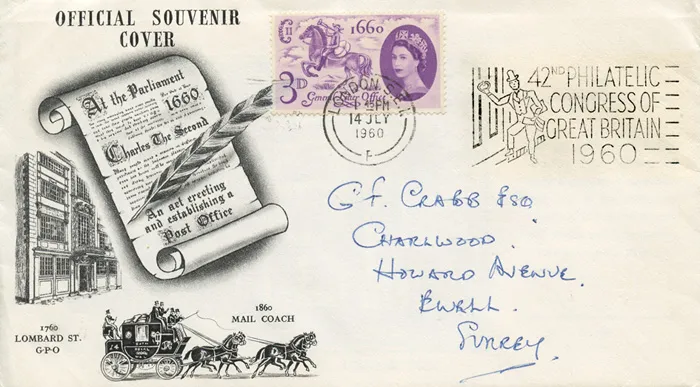 OFFICIAL SOUVENIR
COVER
At the Parliament
1660
Charles The Second
An act erecting
and establishing a
Post Office
1760
LOMBARD ST.
G·P·O
1860
MAIL COACH
E II R
1660
3D
General Letter Office
LONDON
PM
14 JLY
1960
F
42ND PHILATELIC
CONGRESS OF
GREAT BRITAIN
1960
G.F. CRABB ESQ
CHARLWOOD.
HOWARD AVENUE.
EWELL.
SURREY.